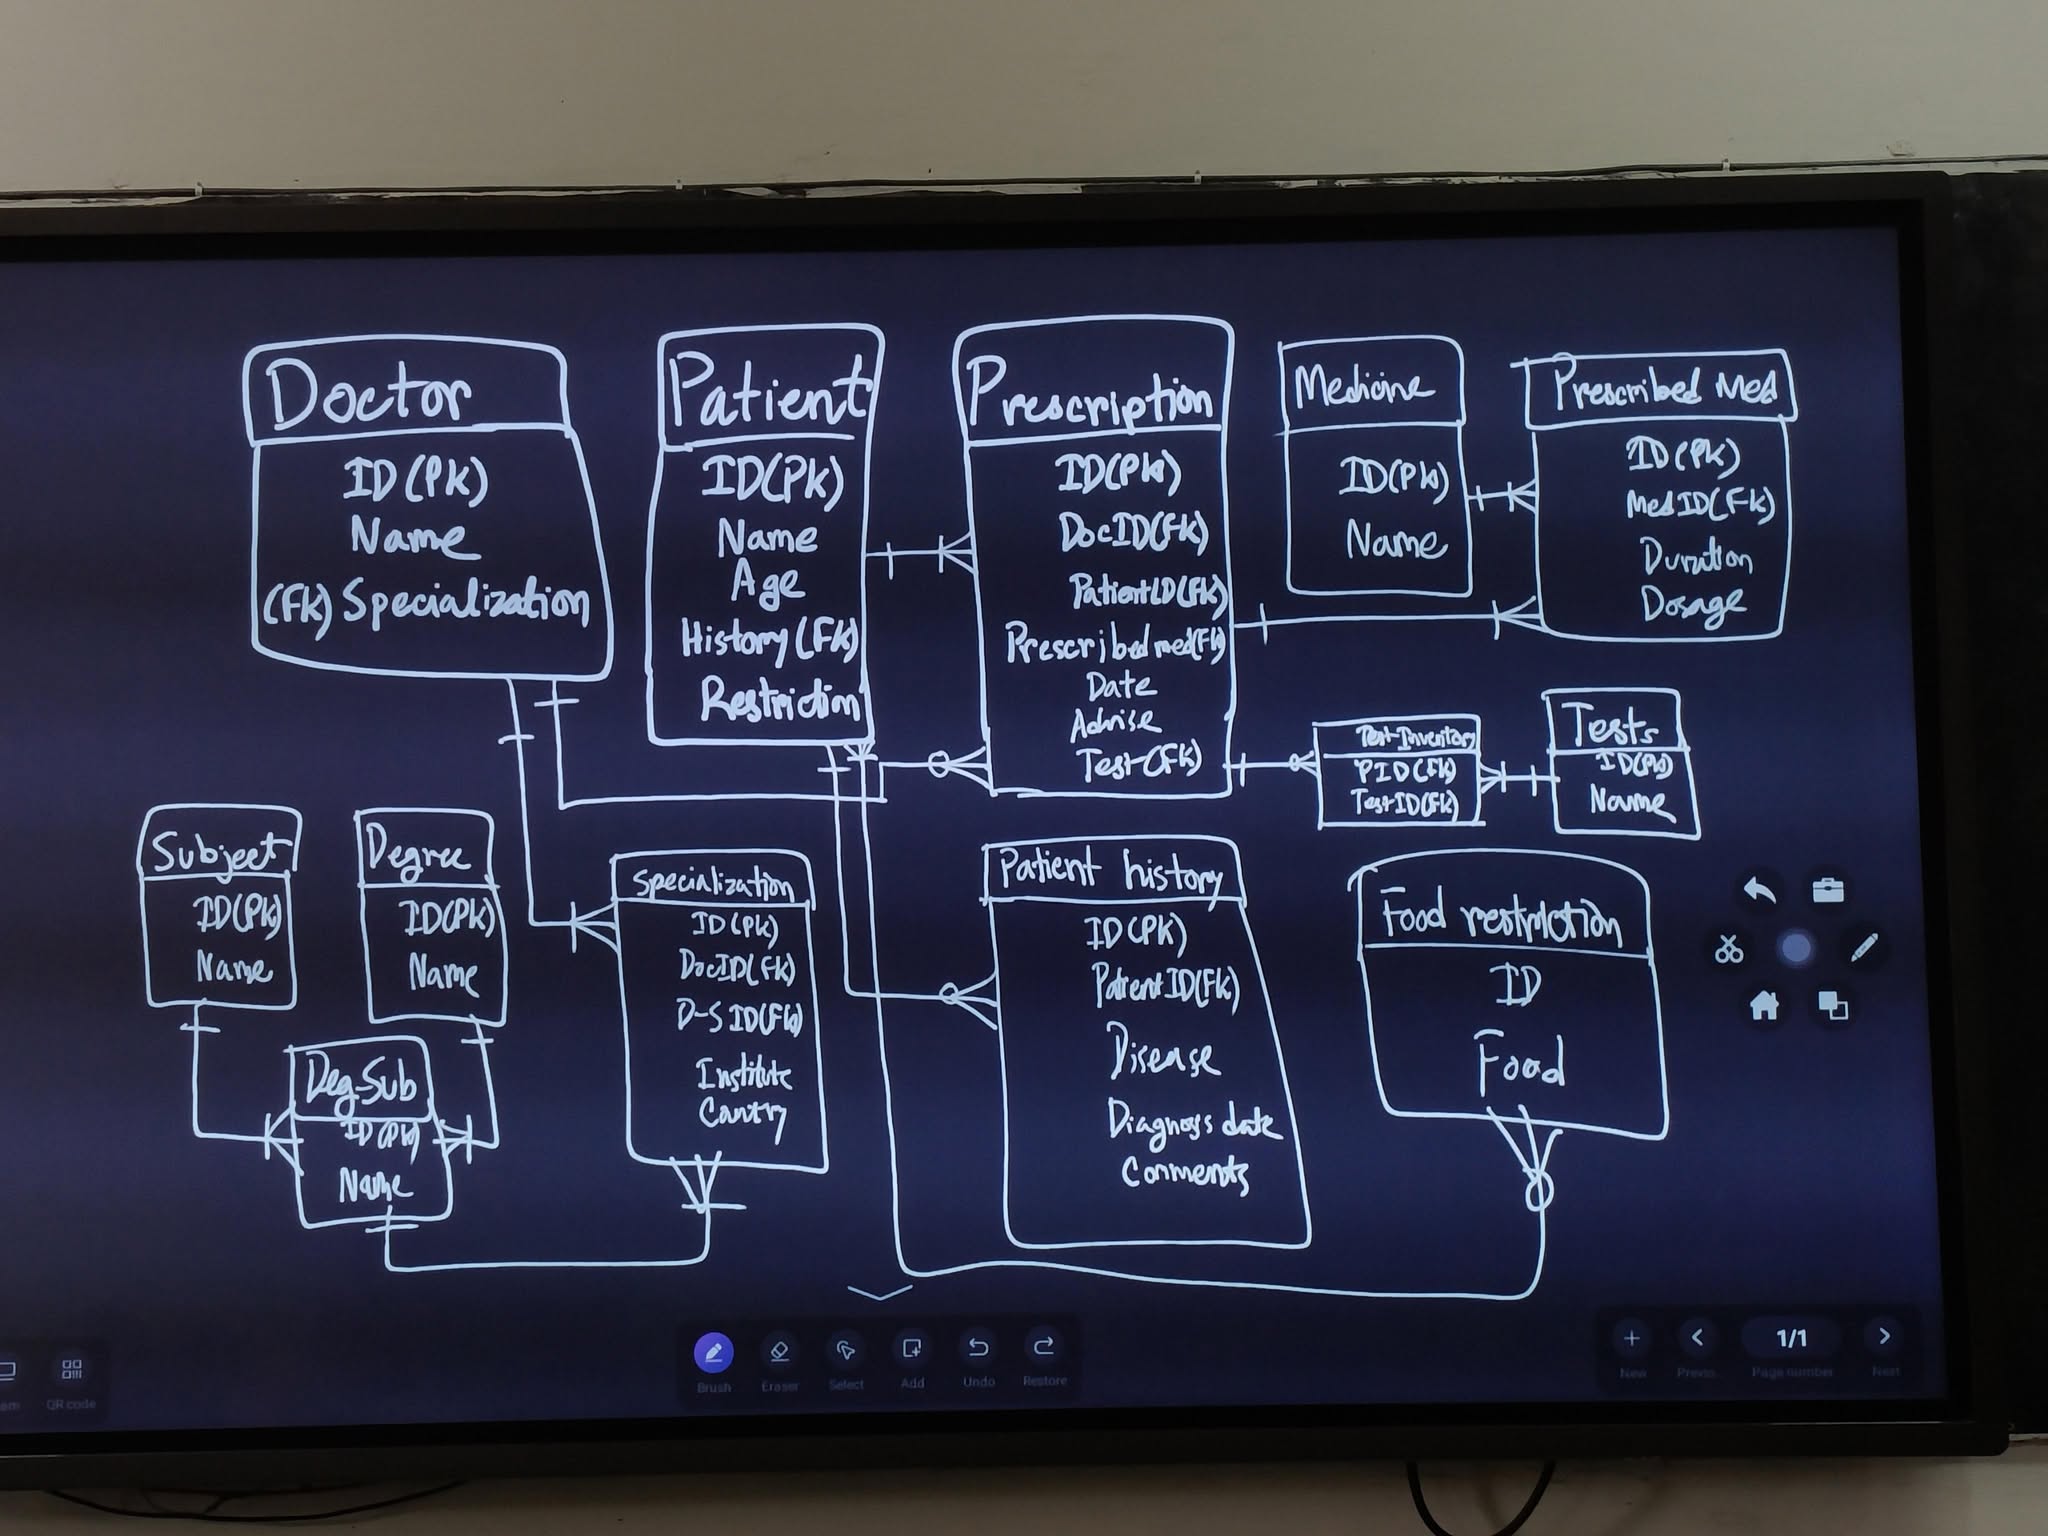 Doctor
ID(PK)
Name
(FK) Specialization
Patient
ID(PK)
Name
Age
History(FK)
Restriction
Prescription
ID(PK)
DocID(FK)
PatientID(FK)
Prescribedmed(FK)
Date
Advise
Test(FK)
Medicine
ID(PK)
Name
Prescribed Med
ID(PK)
MedID(FK)
Duration
Dosage
Test-Inventory
PID(FK)
TestID(FK)
Tests
ID(PK)
Name
Subject
ID(PK)
Name
Degree
ID(PK)
Name
Deg-Sub
ID(PK)
Name
Specialization
ID(PK)
DocID(FK)
D-S ID(FK)
Institute
Country
Patient history
ID(PK)
PatientID(FK)
Disease
Diagnosis date
Comments
Food restriction
ID
Food
QR code
Brush
Eraser
Select
Add
Undo
Restore
New
Previo...
1/1
Page number
Next